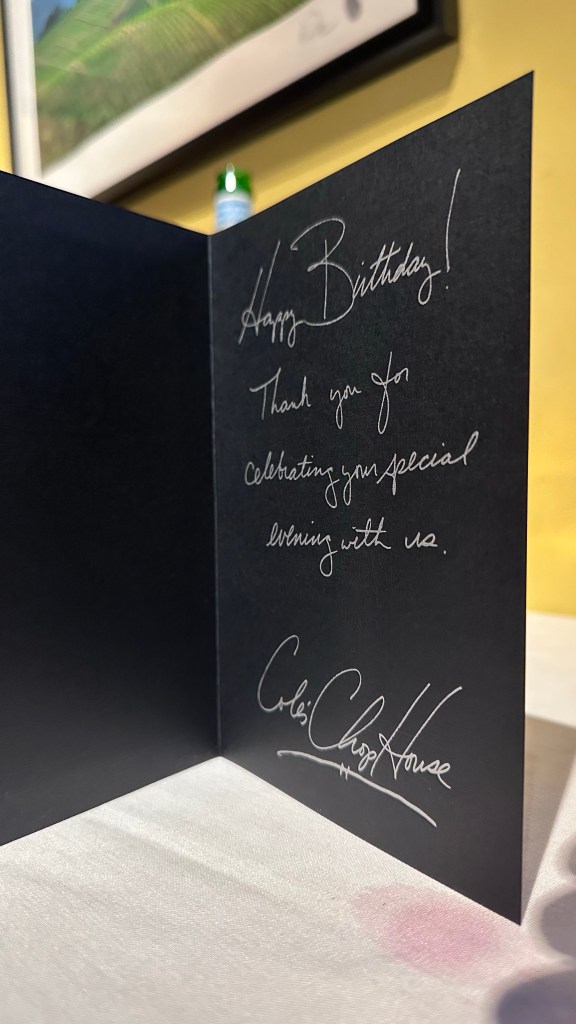 Happy Birthday!
Thank you for
celebrating your special
evening with us.
Cole's Chop House